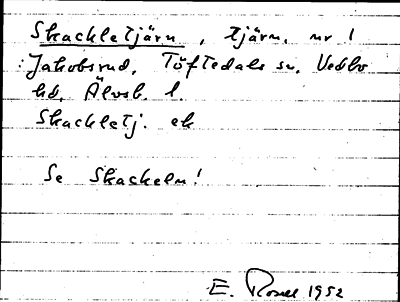 Skackletjärn, tjärn, nr 1
Jakobsrud, Töftedals sn, Vedbo
hd, Älvsb. l.
Skackletj. ek
Se Skackeln!
E. Rosell 1952